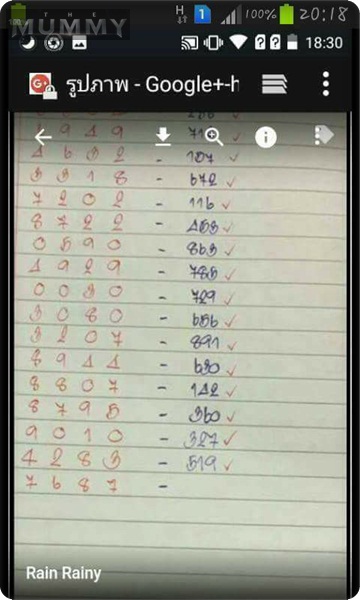 THE MUMMY
100% 20:18
18:30
รูปภาพ - Google+-h
1949 - 71
4632 - 107 ✓
3318 - 672 ✓
7202 - 116 ✓
8722 - 453 ✓
0590 - 863 ✓
4929 - 785 ✓
0030 - 729 ✓
3080 - 656 ✓
3207 - 891 ✓
8944 - 630 ✓
8807 - 142 ✓
8795 - 360 ✓
9010 - 327 ✓
4283 - 519 ✓
7687 -
Rain Rainy